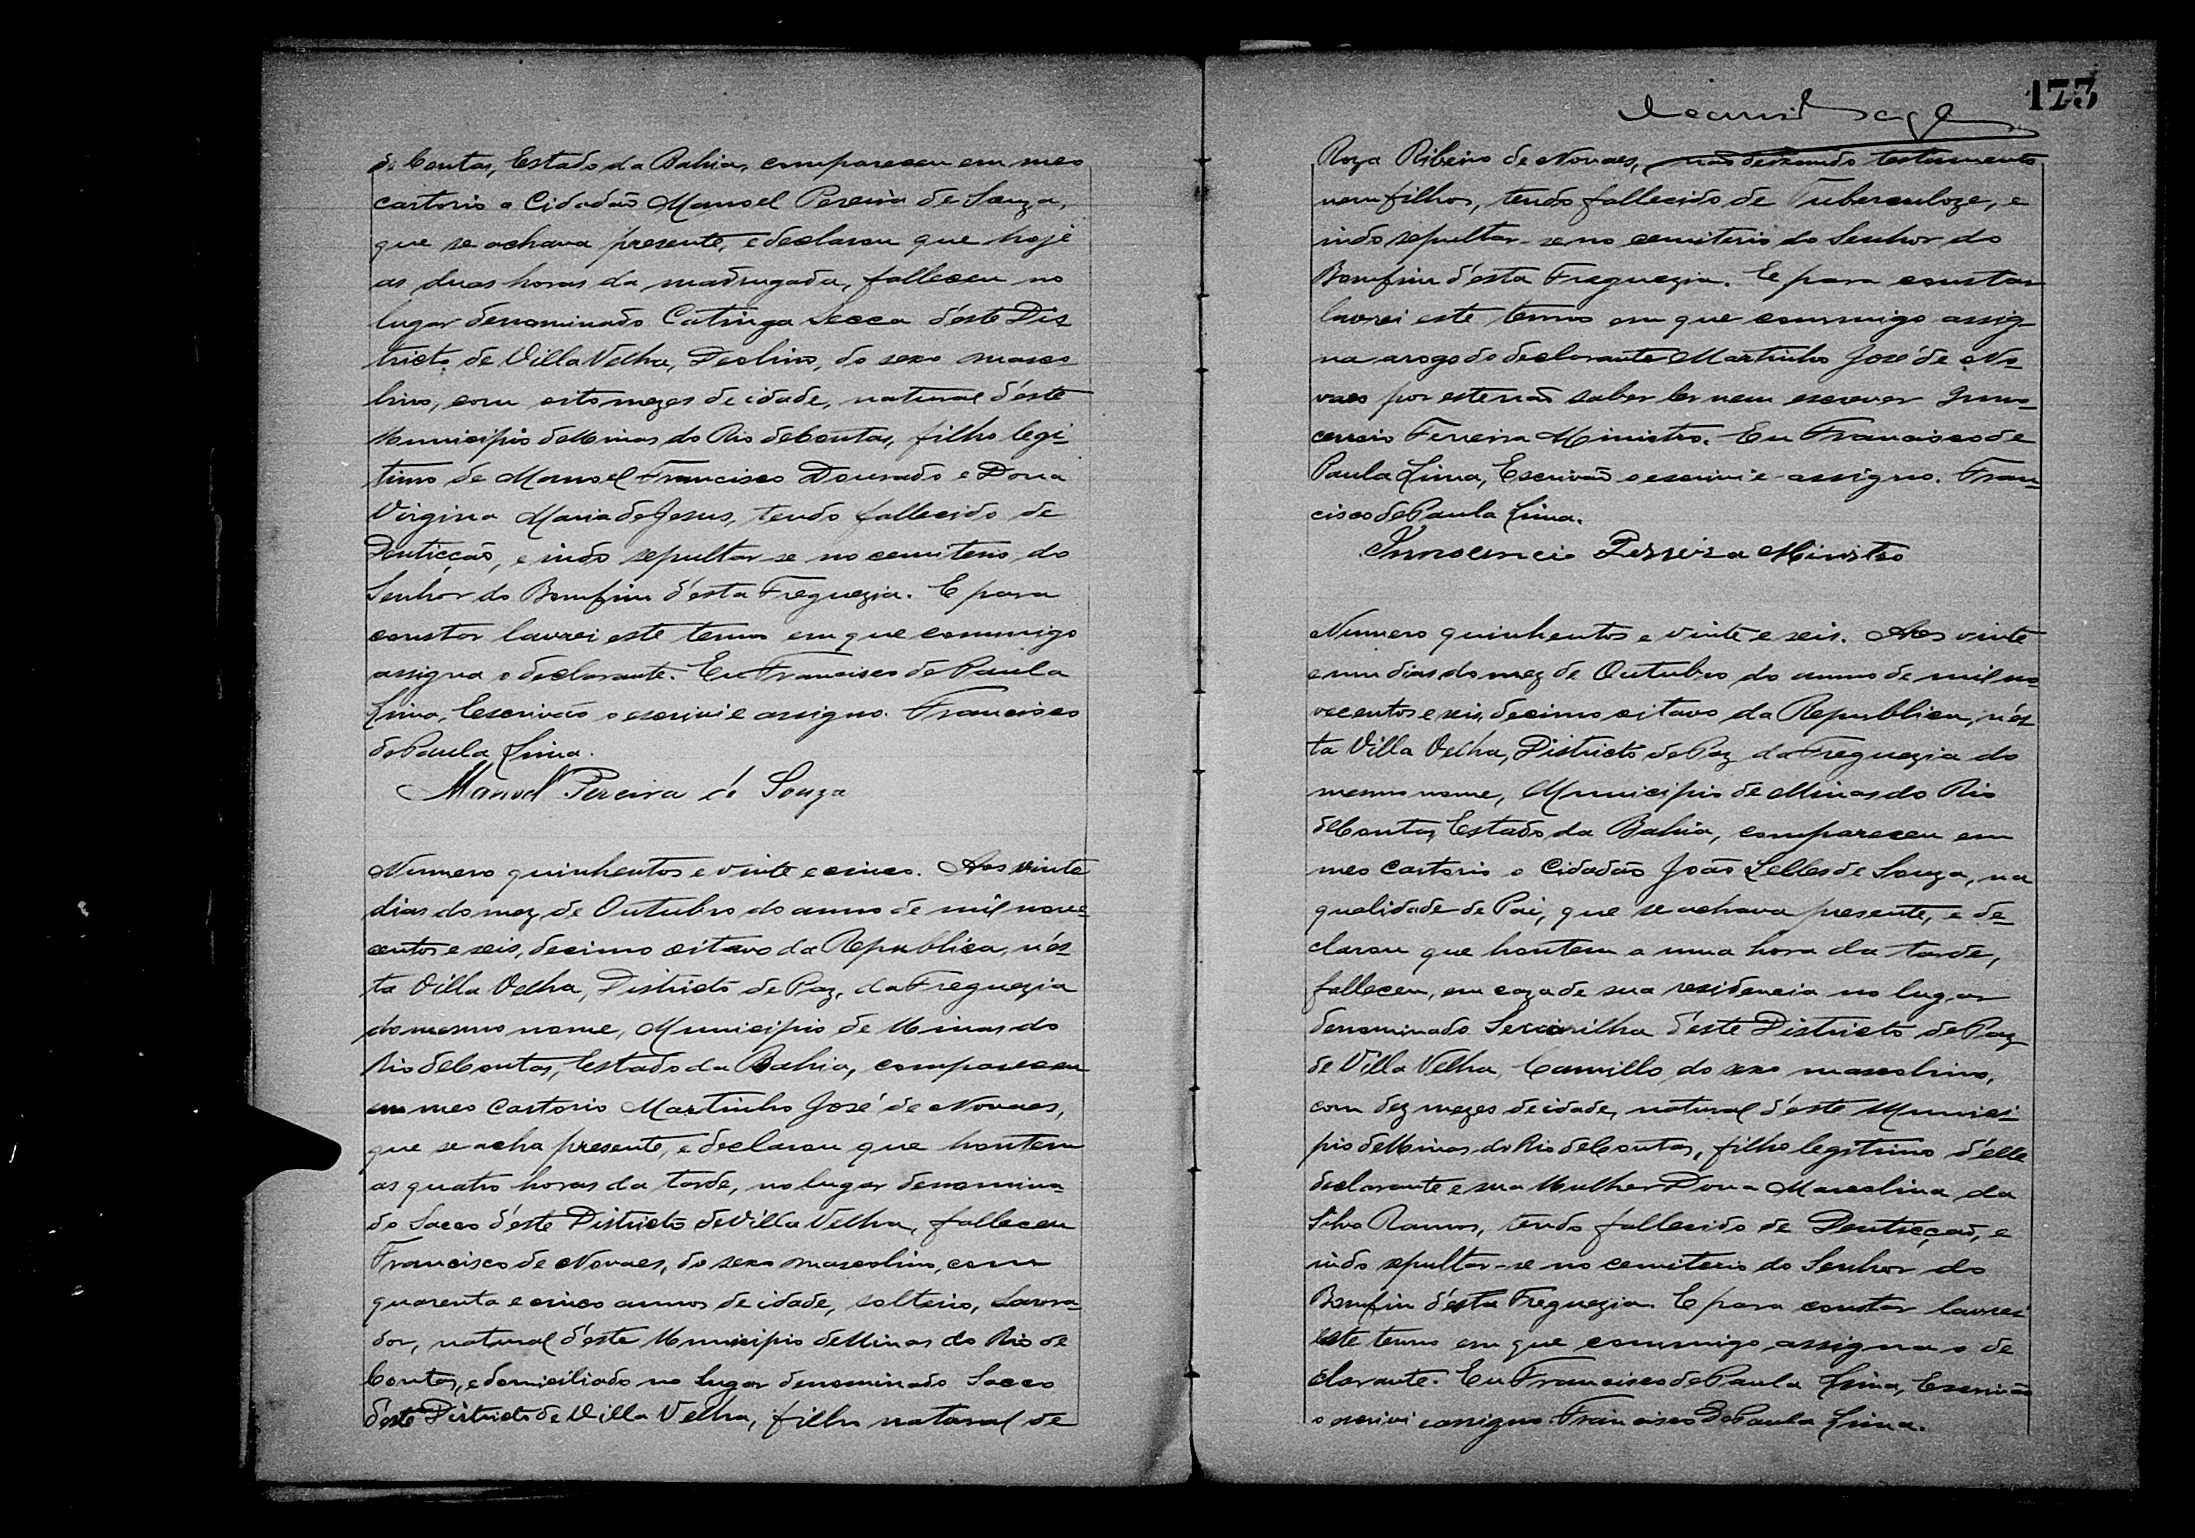 de Contas, Estado da Bahia, compareceu em meo
cartorio o Cidadão Manoel Pereira de Souza,
que se achava presente, e declarou que hoje
as duas horas da madrugada, falleceu no
lugar denominado Catinga Secca d'este Dis-
tricto de Villa Velha, Deolino, do sexo mascu-
lino, com oito mezes de idade, natural d'este
Municipio de Minas do Rio de Contas, filho legi-
timo de Manoel Francisco Dourado e Dona
Virgina Maria de Jesus, tendo fallecido de
Denticção, e indo sepultar-se no cemiterio do
Senhor do Bomfim d'esta Freguezia. E para
constar lavrei este termo em que commigo
assigna o declarante. Eu Francisco de Paula
Lima, Escrivão o escrivi e assigno. Francisco
de Paula Lima.
Manoel Pereira de Souza
Numero quinhentos e vinte e cinco. Aos vinte
dias do mez de Outubro do anno de mil nove-
centos e seis, decimo oitavo da Republica, n'es-
ta Villa Velha, Districto de Paz, da Freguezia
do mesmo nome, Municipio de Minas do
Rio de Contas, Estado da Bahia, compareceu
em meo Cartorio Martinho José de Novaes,
que se acha presente, e declarou que hontem
as quatro horas da tarde, no lugar denomina-
do Sacco d'este Districto de Villa Velha, falleceu
Francisco de Novaes, do sexo masculino, com
quarenta e cinco annos de idade, solteiro, Lavra-
dor, natural d'este Municipio de Minas do Rio de
Contas, e domiciliado no lugar denominado Sacco
d'este Districto de Villa Velha, filho natural de
173
Roza Ribeiro de Novaes, não deixando testamento
nem filhos, tendo fallecido de Tuberculoze, e
indo sepultar-se no cemiterio do Senhor do
Bomfim d'esta Freguezia. E para constar
lavrei este termo em que commigo assig-
na arogo do declarante Martinho José de No-
vaes por este não saber ler nem escrever Inno-
cencio Ferreira Ministro. Eu Francisco de
Paula Lima, Escrivão o escrivi e assigno. Fran-
cisco de Paula Lima.
Innocencio Ferreira Ministro
Numero quinhentos e vinte e seis. Aos vinte
e um dias do mez de Outubro do anno de mil no-
vecentos e seis, decimo oitavo da Republica, n'es-
ta Villa Velha, Districto de Paz da Freguezia do
mesmo nome, Municipio de Minas do Rio
de Contas, Estado da Bahia, compareceu em
meo Cartorio o Cidadão João Telles de Souza, na
qualidade de Pai, que se achava presente, e de-
clarou que hontem a uma hora da tarde,
falleceu, em caza de sua residencia no lugar
denominado d'este Districto de Paz
de Villa Velha, Camillo do sexo masculino,
com dez mezes de idade, natural d'este Munici-
pio de Minas do Rio de Contas, filho legitimo d'elle
declarante e sua Mulher Dona Marcolina da
Silva Ramos, tendo fallecido de Denticção, e
indo sepultar-se no cemiterio do Senhor do
Bomfim d'esta Freguezia. E para constar lavrei
este termo em que commigo assigna o de
clarante. Eu Francisco de Paula Lima, Escrivão
o escrivi e assigno Francisco de Paula Lima.